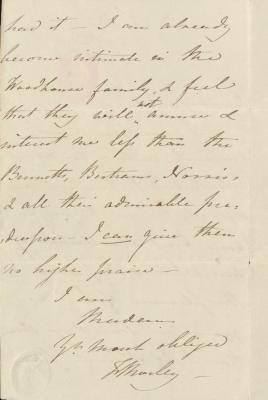 had it — I am already
become intimate in the
Woodhouse family, & feel
that they will not amuse &
interest me less than the
Bennetts, Bertrams, Norriss
& all their admirable pre-
decessors — I can give them
no higher praise —
I am
Madam
Yr. Much obliged
F. Morley —